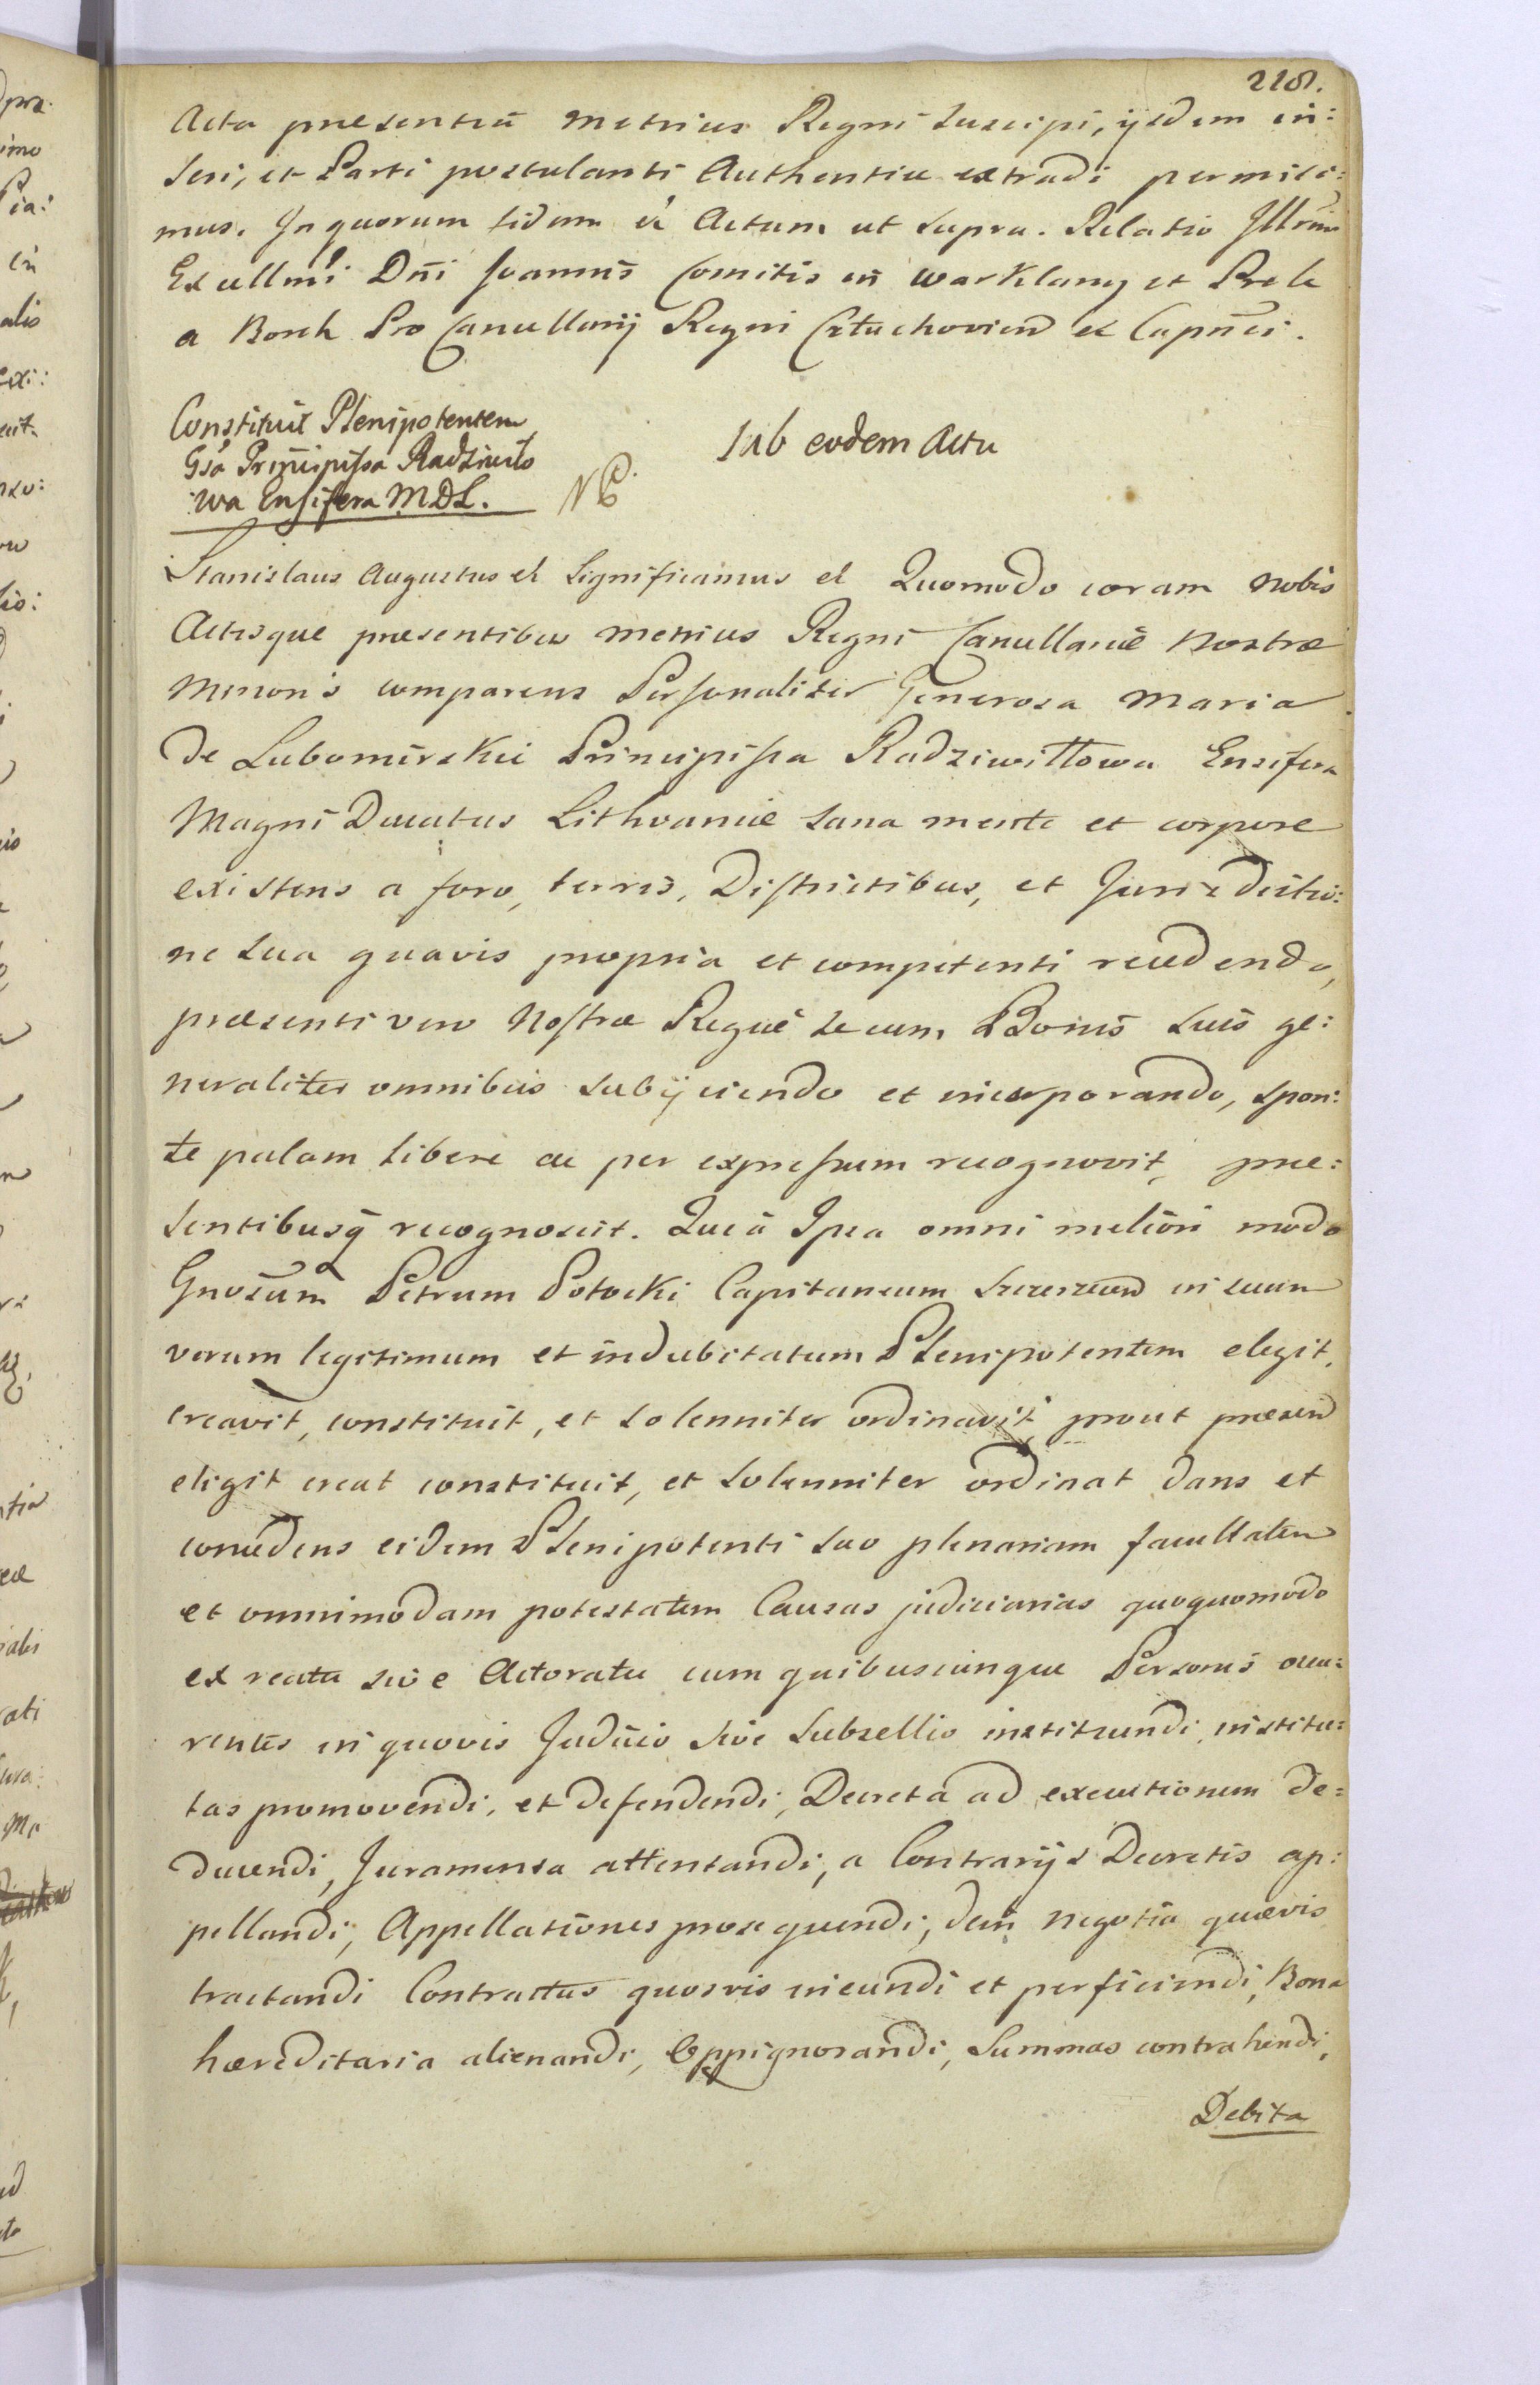 218.
Acta præsentiũ Metrices Regni suscipi, ijsdem in:
seri, et Parti postulanti Authentice extradi permisi:
mus. In quorum fidem & Actum ut supra. Relatio Illrmi
Excellmi Dñi Joannis Comitis in Warklany et Prele
a Borch Pro Cancellarij Regni Człuchovien & Capnei.
Constituit Plenipotentem
Gsa Principissa Radziwiło
:wa Ensifera MDL.
Sub eodem Actu
Stanislaus Augustus & Significamus & Quomodo coram Nobis
Actisque præsentibus Metrices Regni Cancellariæ Nostræ
Minoris comparens Personaliter Generosa Maria
de Lubomirskie Principissa Radziwiłłowa Ensifera
Magni Ducatus Lithvaniæ sana mente et corpore
existens a foro, terris, Districtibus, et Jurisdictio:
ne sua quavis propria et competenti recedendo,
præsenti vero Nostræ Regiæ se cum Bonis suis ge:
neraliter omnibus subijciendo et incorporando, spon:
te palam libere ac per expressum recognovit, præ:
sentibusq recognoscit. Quia Ipsa omni meliori modo
Gnosum Petrum Potocki Capitaneum in suum
verum legitimum et indubitatum Plenipotentem elegit,
creavit, constituit, et solenniter ordinavit, prout præsen
eligit creat constituit, et solenniter ordinat dans et
concedens eidem Plenipotenti suo plenariam facultatem
et omnimodam potestatem Causas judiciarias quoquomodo
ex reatu sive Actoratu cum quibuscunque Personis occu:
rentes in quovis Judicio sive Subsellio instituendi, institu:
tas promovendi, et defendendi, Decreta ad executionem de:
ducendi, Juramenta attentandi, a Contrarijs Decretis ap:
pellandi, Appellationes prosequendi, dein negotia quævis
tractandi Contractus quosvis ineundi et perficiendi, Bona
hæreditaria alienandi, Oppignorandi, Summas contrahendi,
Debita